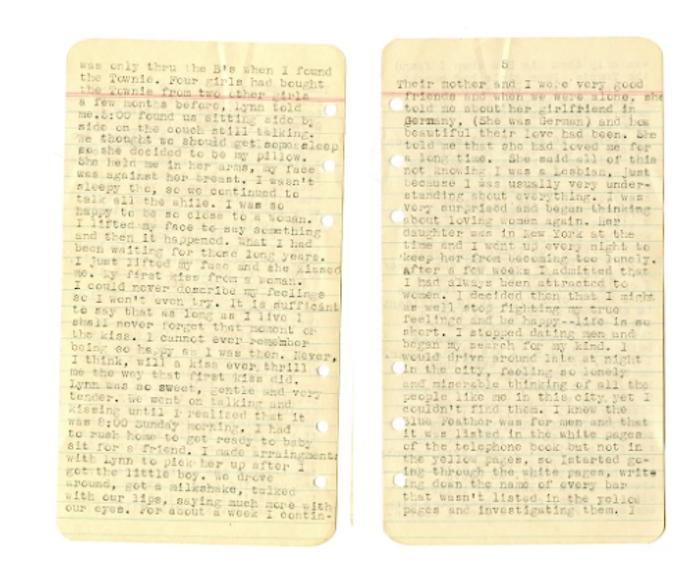 was only thru the B's when I found
the Townie. Four girls had bought
the Townie from two other girls
a few months before, Lynn told
me.5:00 found us sitting side by
side on the couch still talking.
We thought we should get some sleep
so she decided to be my pillow.
She held me in her arms, my face
was against her breast. I wasn't
sleepy tho, so we continued to
talk all the while. I was so
happy to be so close to a woman.
I lifted my face to say something
and then it happened. What I had
been waiting for those long years.
I just lifted my face and she kissed
me. My first kiss from a woman.
I could never describe my feelings
so I won't even try. It is sufficant
to say that as long as I live I
shall never forget that moment or
the kiss. I cannot ever remember
being so happy as I was then. Never,
I think, will a kiss ever thrill
me the way that first kiss did.
Lynn was so sweet, gentle and very
tender. We went on talking and
kissing until I realized that it
was 8:00 Sunday morning. I had
to rush home to get ready to baby
sit for a friend. I made arraingments
with Lynn to pick her up after I
got the little boy. We drove
around, got a milkshake, talked
with our lips, saying much more with
our eyes. For about a week I contin-
5
Their mother and I were very good
friends and when we were alone, she
told me about her girlfriend in
Germany, (She was German) and how
beautiful their love had been. She
told me that she had loved me for
a long time. She said all of this
not knowing I was a Lesbian, just
because I was usually very under-
standing about everything. I was
very surprised and began thinking
about loving women again. Her
daughter was in New York at the
time and I went up every night to
keep her from becoming too lonely.
After a few weeks I admitted that
I had always been attracted to
women. I decided then that I might
as well stop fighting my true
feelings and be happy--life is so
short. I stopped dating men and
began my search for my kind. I
would drive around late at night
in the city, feeling so lonely
and miserable thinking of all the
people like me in this city yet I
couldn't find them. I knew the
Blue Feather was for men and that
it was listed in the white pages
of the telephone book but not in
the yellow pages, so Istarted go-
ing through the white pages, writ-
ing down the name of every bar
that wasn't listed in the yellow
pages and investigating them. I